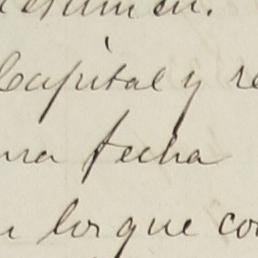 Capital y re
una fecha
los que co